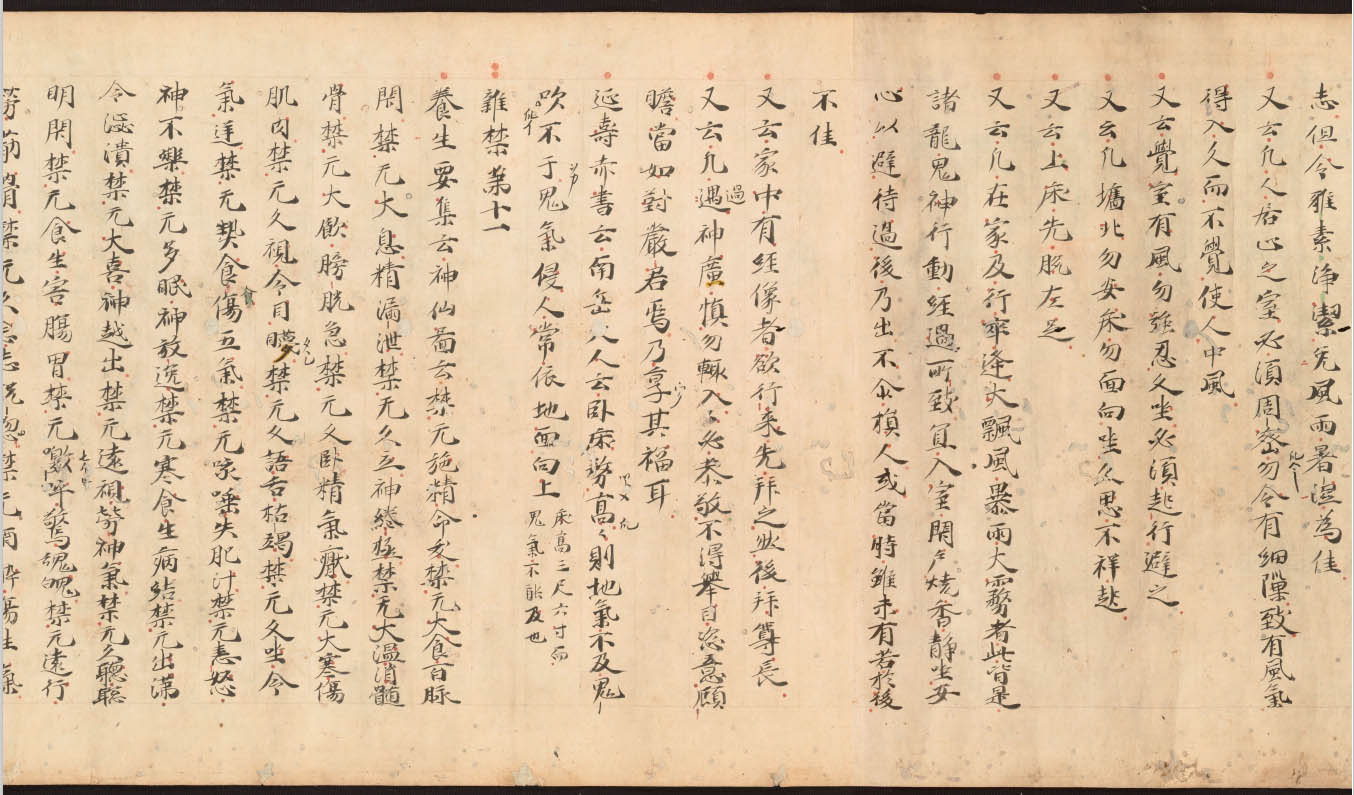 志但令雅素浄潔免風雨暑濕為佳
又云凡人居止之室必須周密勿令有細隙致有風氣
得入久而不覺使人中風
又云覺室有風勿強忍久坐必須起行避之
又云凡墻北勿安床勿面向坐久思不祥起
又云上床先脱左足
又云凡在家及行卒逢大飄風暴雨大霧者此皆是
諸龍鬼神行動經過所致宜入室閇戶燒香靜坐安
心以避待過後乃出不尒損人或當時雖未有若於後
不佳
又云家中有經像者欲行来先拜之然後拜尊長
又云凡遇神廣慎勿輙入〻必恭敬不得舉目恣意顧
瞻當如對嚴君焉乃享其福耳
延壽赤書云南岳夫人云卧床務高〻則地氣不及鬼
吹不干鬼氣侵人常依地面向上床高三尺六寸而鬼氣不能及也
雜禁第十一
養生要集云神仙啚云禁元施精命夭禁元大食百脉
閇禁元大息精漏泄禁无久立神綣極禁无大温消髓
骨禁元大飲膀胱急禁元久卧精氣癈禁元大寒傷
肌肉禁元久視令目禁元久語舌枯竭禁元久坐令
氣逆禁元熱食傷五氣禁元唾失肥汁禁元恚怒
神不樂禁元多眠神放逸禁元寒食生病結禁元出
令澁潰禁元大喜神越出禁元遠視勞神氣禁元久聽聡
明閇禁元食生害腸胃禁元噭呼驚魂魄禁元遠行
勞筋骨禁元久念志恍惚禁元酒醉傷生氣